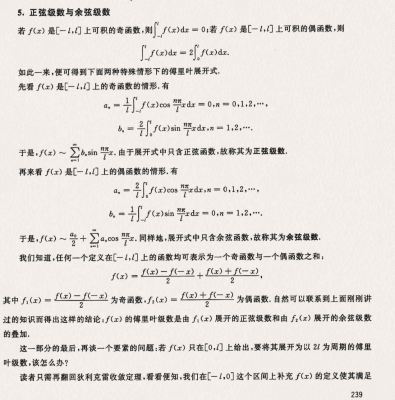 5. 正弦级数与余弦级数
若 f(x) 是[-l,l]上可积的奇函数,则∫_{-l}^{l} f(x)dx = 0;若 f(x) 是[-l,l]上可积的偶函数,则
∫_{-l}^{l} f(x)dx = 2∫_{0}^{l} f(x)dx.
如此一来,便可得到下面两种特殊情形下的傅里叶展开式.
先看 f(x) 是[-l,l]上的奇函数的情形.有
a_n = \frac{1}{l}∫_{-l}^{l} f(x)cos \frac{nπ}{l}x dx = 0,n = 0,1,2,⋯,
b_n = \frac{2}{l}∫_{0}^{l} f(x)sin \frac{nπ}{l}x dx,n = 1,2,⋯.
于是,f(x) ~ \sum_{n=1}^{∞} b_n sin \frac{nπ}{l}x.由于展开式中只含正弦函数,故称其为正弦级数.
再来看 f(x) 是[-l,l]上的偶函数的情形.有
a_n = \frac{2}{l}∫_{0}^{l} f(x)cos \frac{nπ}{l}x dx,n = 0,1,2,⋯,
b_n = \frac{1}{l}∫_{-l}^{l} f(x)sin \frac{nπ}{l}x dx = 0,n = 1,2,⋯.
于是,f(x) ~ \frac{a_0}{2} + \sum_{n=1}^{∞} a_n cos \frac{nπ}{l}x.同样地,展开式中只含余弦函数,故称其为余弦级数.
我们知道,任何一个定义在[-l,l]上的函数均可表示为一个奇函数与一个偶函数之和:
f(x) = \frac{f(x)-f(-x)}{2} + \frac{f(x)+f(-x)}{2},
其中 f_1(x) = \frac{f(x)-f(-x)}{2} 为奇函数,f_2(x) = \frac{f(x)+f(-x)}{2} 为偶函数.自然可以联系到上面刚刚讲
过的知识而得出这样的结论:f(x) 的傅里叶级数是由 f_1(x) 展开的正弦级数和由 f_2(x) 展开的余弦级数
的叠加.
这一部分的最后,再谈一个要紧的问题:若 f(x) 只在[0,l]上给出,要将其展开为以 2l 为周期的傅里
叶级数,该怎么办?
读者只需再翻回狄利克雷收敛定理,看看便知,我们在[-l,0]这个区间上补充 f(x) 的定义使其满足
239